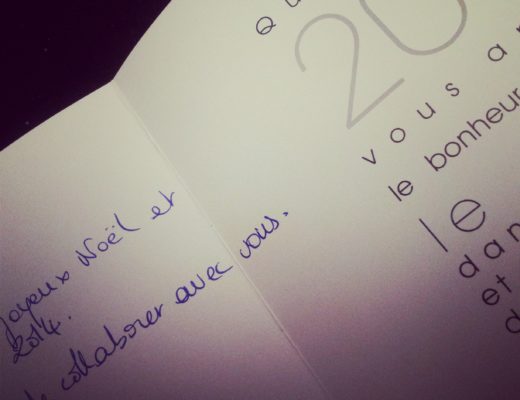 Joyeux Noël et
2014.
collaborer avec vous.
20
vous a
le bonheur
le
dan
et
d